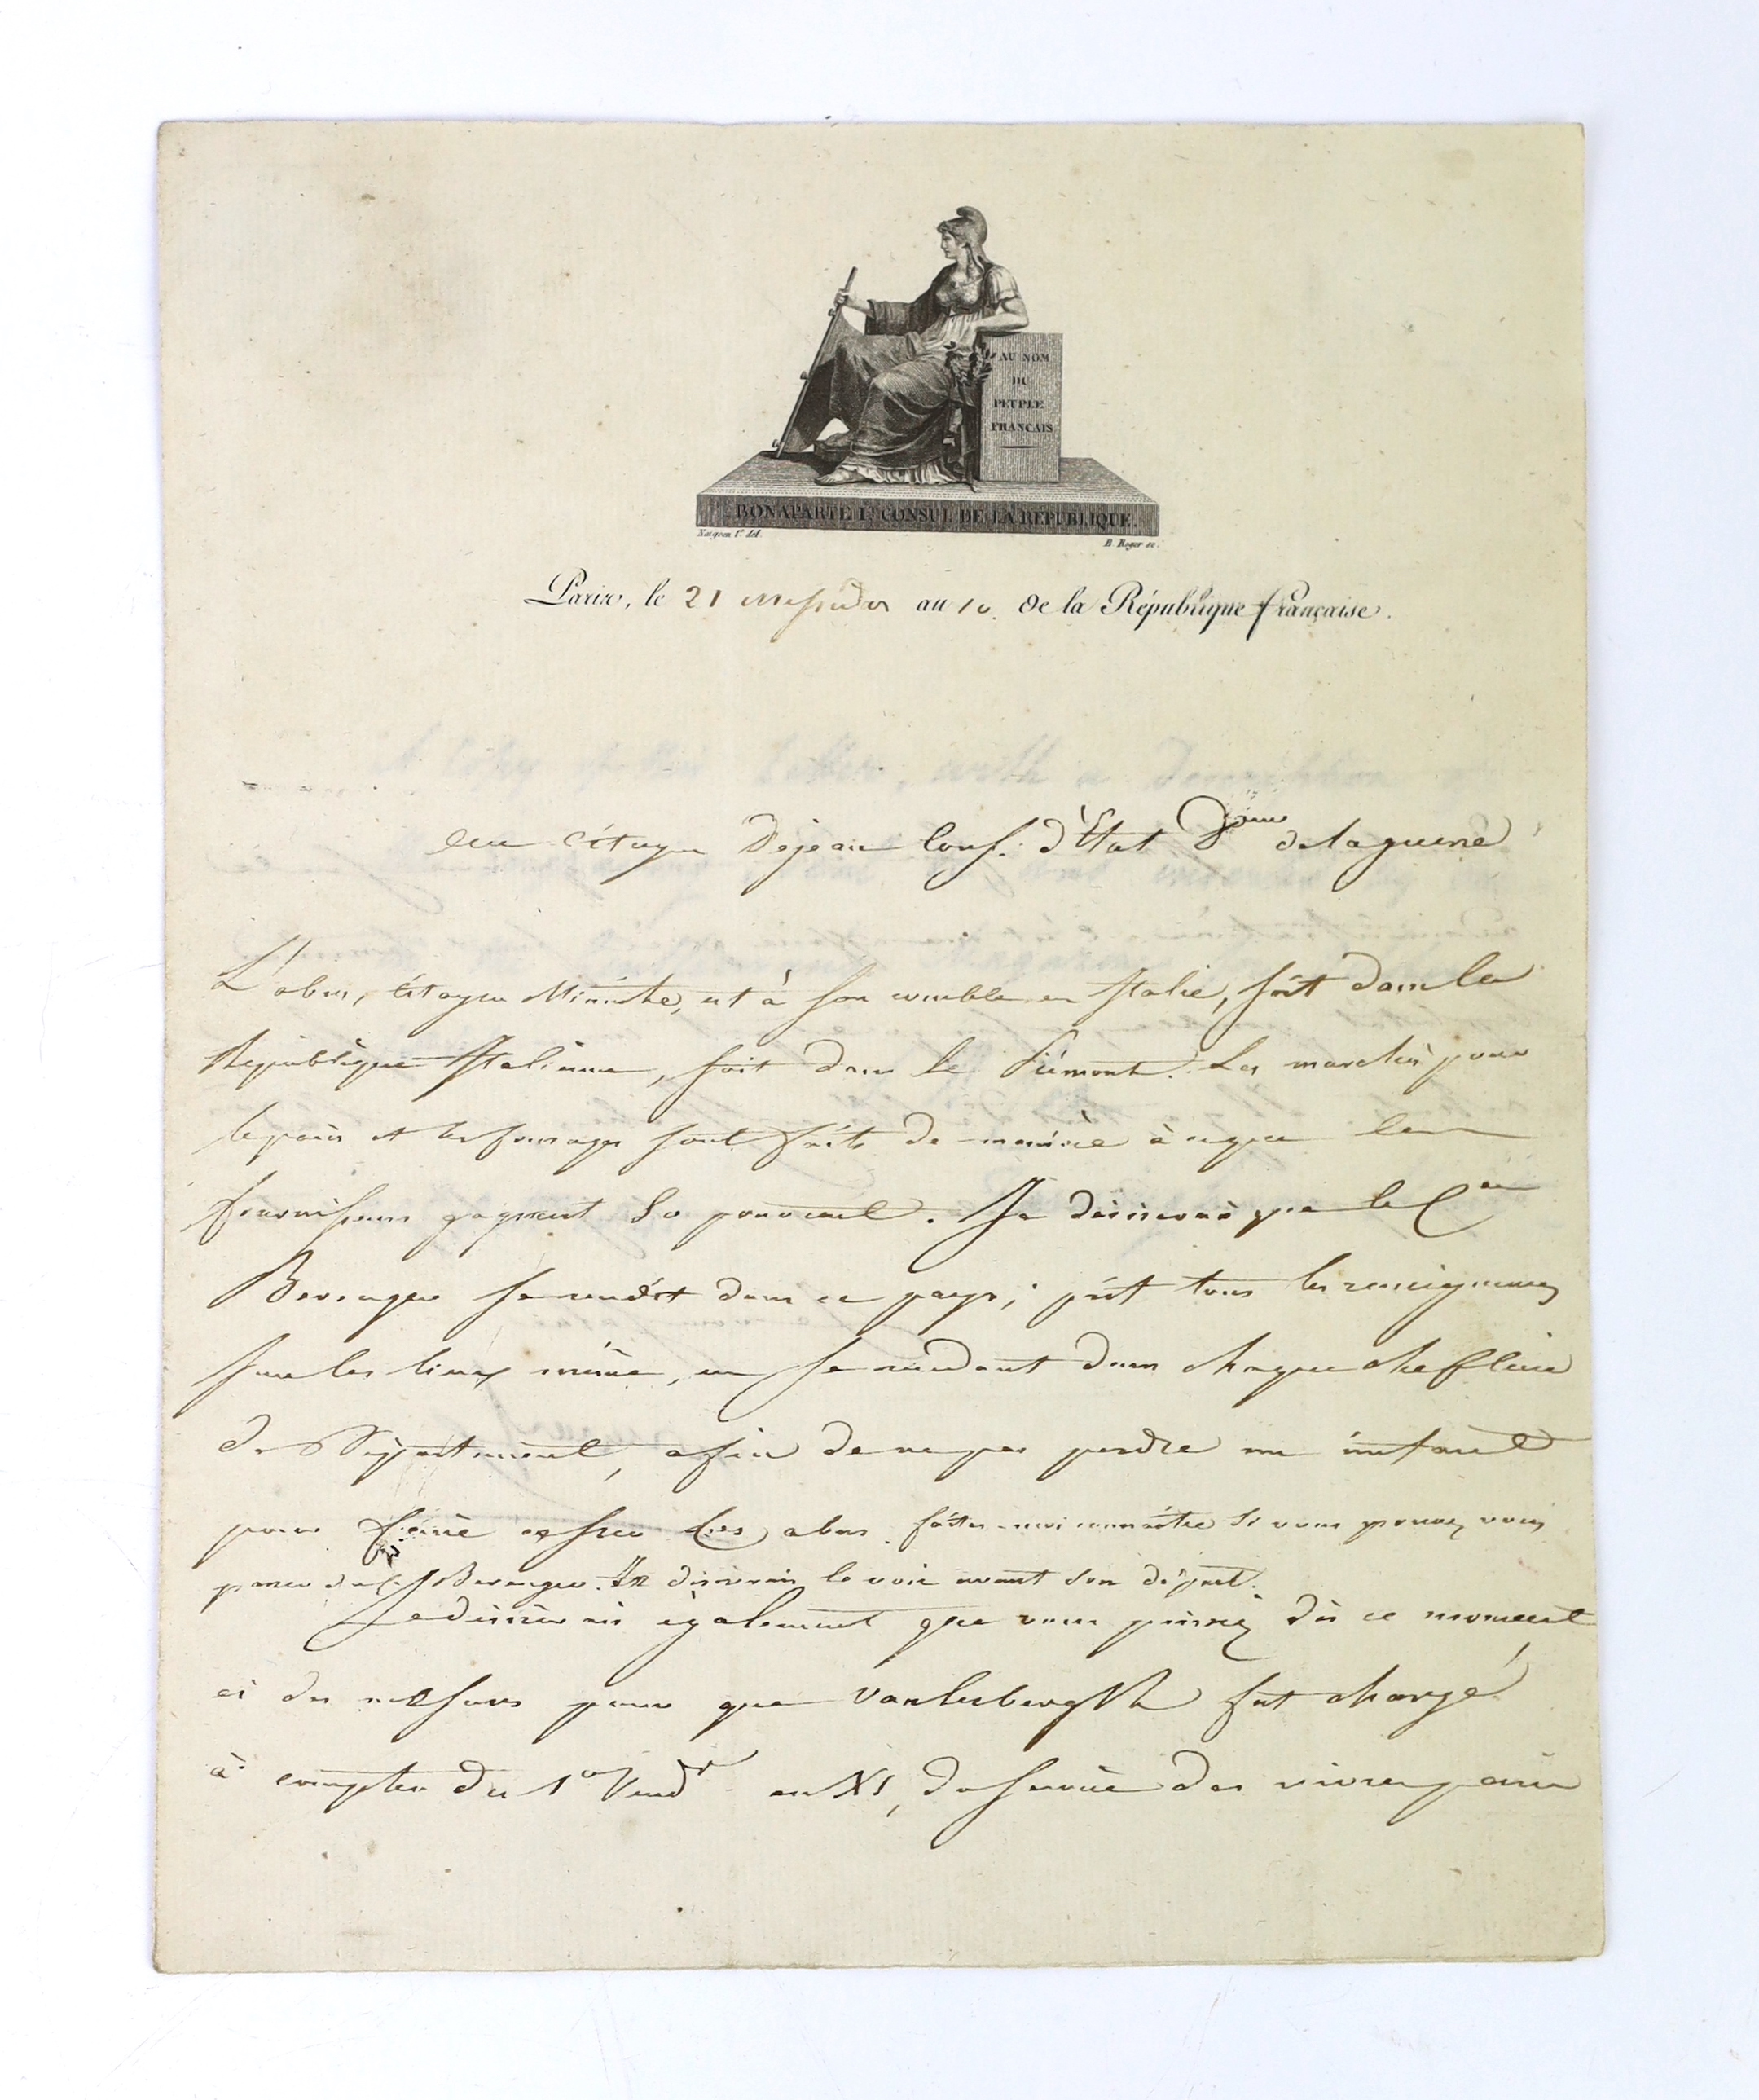 AU NOM
DU
PEUPLE
FRANCAIS
BONAPARTE Ier CONSUL DE LA REPUBLIQUE
Naigeon ft. del.
B. Roger sc.
Paris, le 21 messidor an 10. de la République française.
au citoyen Dejean Cons. d'Etat Dr de la guerre
L'abus, citoyen Ministre, est à son comble en Italie, soit dans la
République Italienne, soit dans le Piémont. Les marchés pour
le pain et les fourages sont faits de manière à ce que les
fournisseurs gagnent 80 pour cent. Je désirerais que le Cen
Berenger se rendit dans ce pays; prît tous les renseignemens
sur les lieux même, en se rendant dans chaque chef lieu
de Département, afin de ne pas perdre un instant
pour faire cesser les abus. faites-moi connaitre si vous pouvez vous
passer du C. Berenger. Je désirerais le voir avant son départ.
Je désirerais également que vous prissiez dès ce moment
ci des mesures pour que Vanlerberghe fut chargé
à compter du 1er Vendre an XI, du service des vivres pain